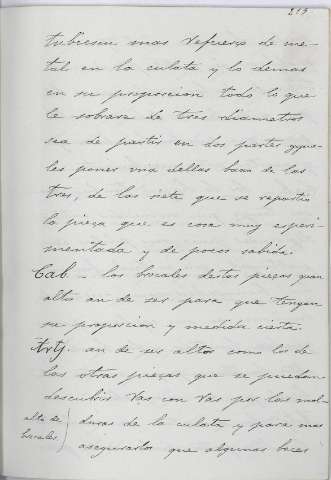 215
tubiesen mas refuerzo de me-
tal en la culata y lo demas
en su proporcion todo lo que
le sobrare de tres diametros
sea de partir en dos partes
les poner una dellas baxo de las
tres, de las siete que se repartio
la pieça que es cosa muy esperi-
mentada y de pocos sabida.
Cab – los brocales destas pieças quan
altos an de ser para que tengan
su proporcion y medida cierta.
Arty. an de ser altos como los de
las otras pieças que se puedan
descubrir ras con ras por las mol-
alto de
brocales
duras de la culata y para mas
asegurarlos que algunas beces